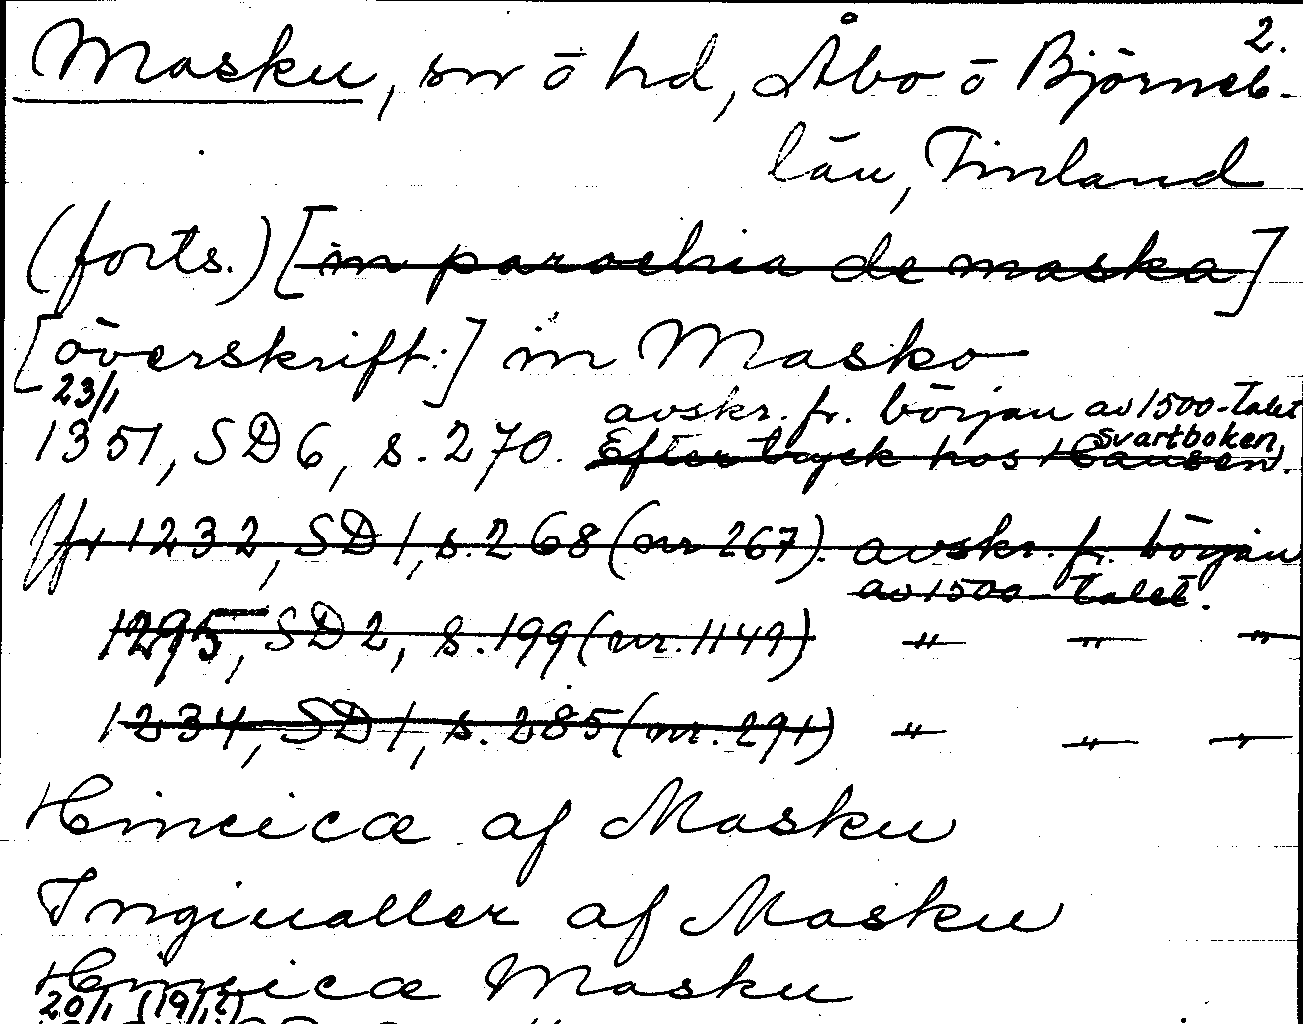 2.
Masku, sn o hd, Åbo o Björneb.
län, Finland
(forts.) [in parochia de maska]
[överskrift:] in Masko
23/1 avskr. fr. början av 1500-talet
1351, SD 6, s. 270. Eftertryck hos Hausen. Svartboken
Jfr 1232, SD 1, s. 268 (nr 267). avskr. fr. början
av 1500-talet.
1295, SD 2, s. 199 (nr. 1149) " " "
1234, SD 1, s. 285 (nr. 291) " " "
Hincicæ af Masku
Ingiualler af Masku
Hincicæ Masku
20/1 (19/1?)